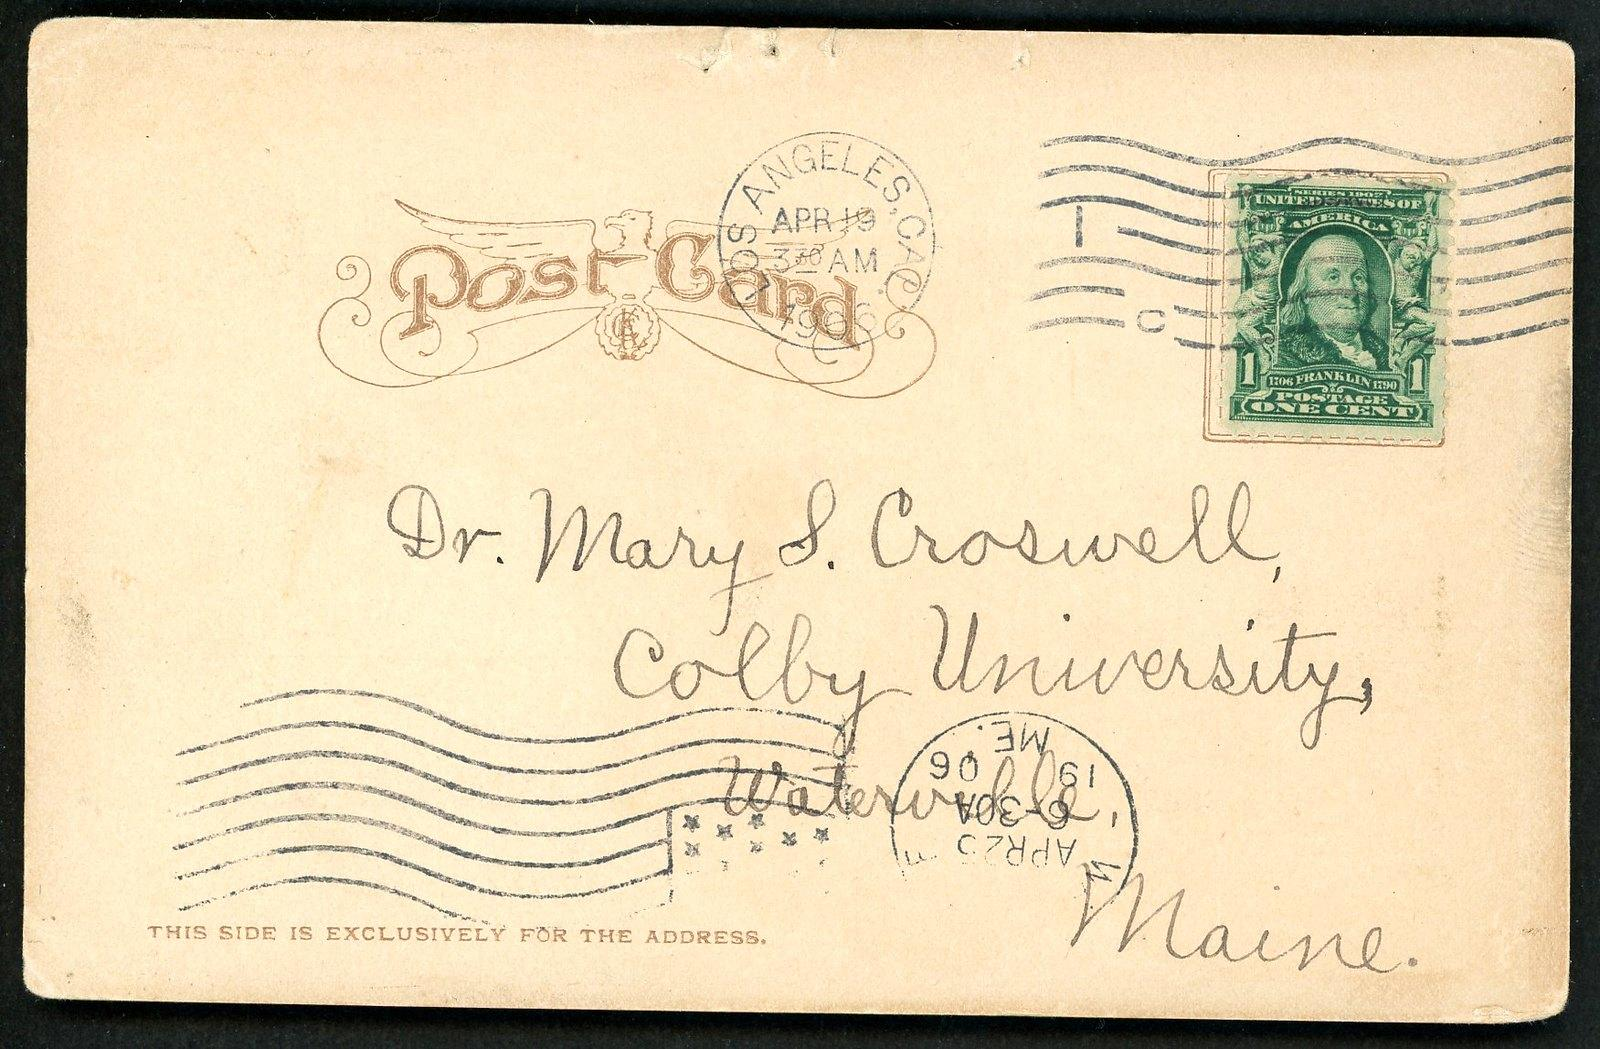 Post Card
LOS ANGELES, CAL.
APR 19
3 30 AM
1906
1
C
SERIES 1902
UNITED STATES OF
AMERICA
1 1706 FRANKLIN 1790 1
POSTAGE
ONE CENT
Dr. Mary S. Croswell,
Colby University,
Waterville,
Maine.
APR 25
6-30A
19 06
ME.
THIS SIDE IS EXCLUSIVELY FOR THE ADDRESS.